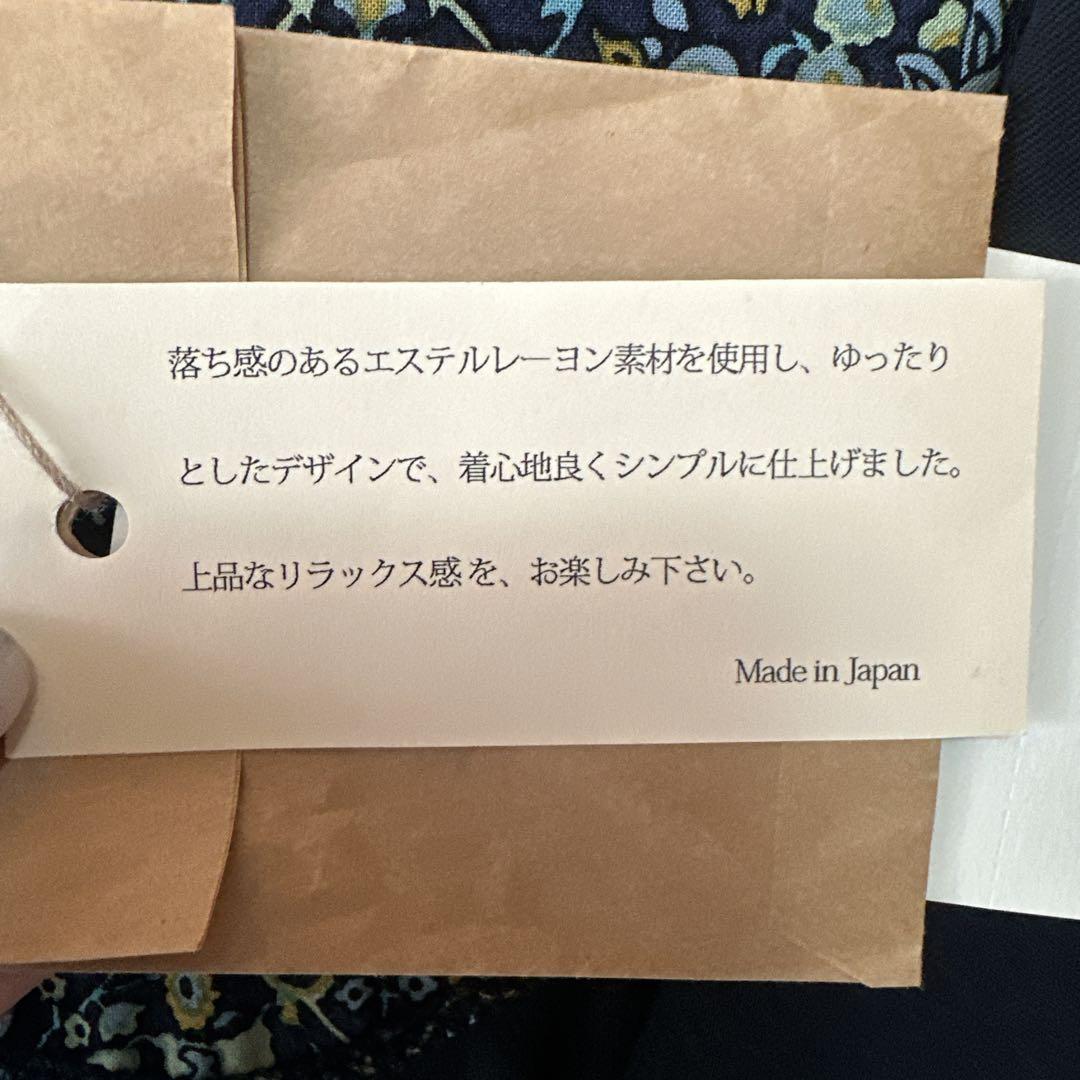 落ち感のあるエステルレーヨン素材を使用し、ゆったり
としたデザインで、着心地良くシンプルに仕上げました。
上品なリラックス感を、お楽しみ下さい。
Made in Japan